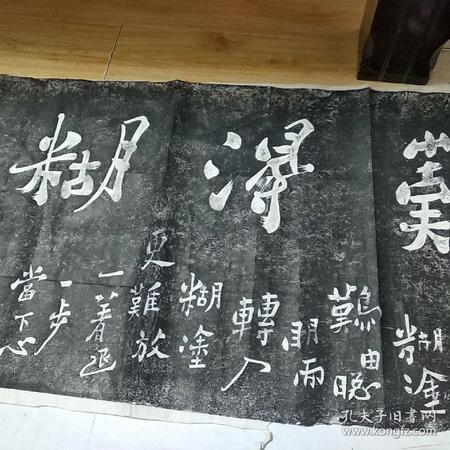 得糊
糊塗
難由聰
明而
轉入
糊塗
更難放
一著退
一步
當下心
孔夫子旧书网
www.kongfz.com